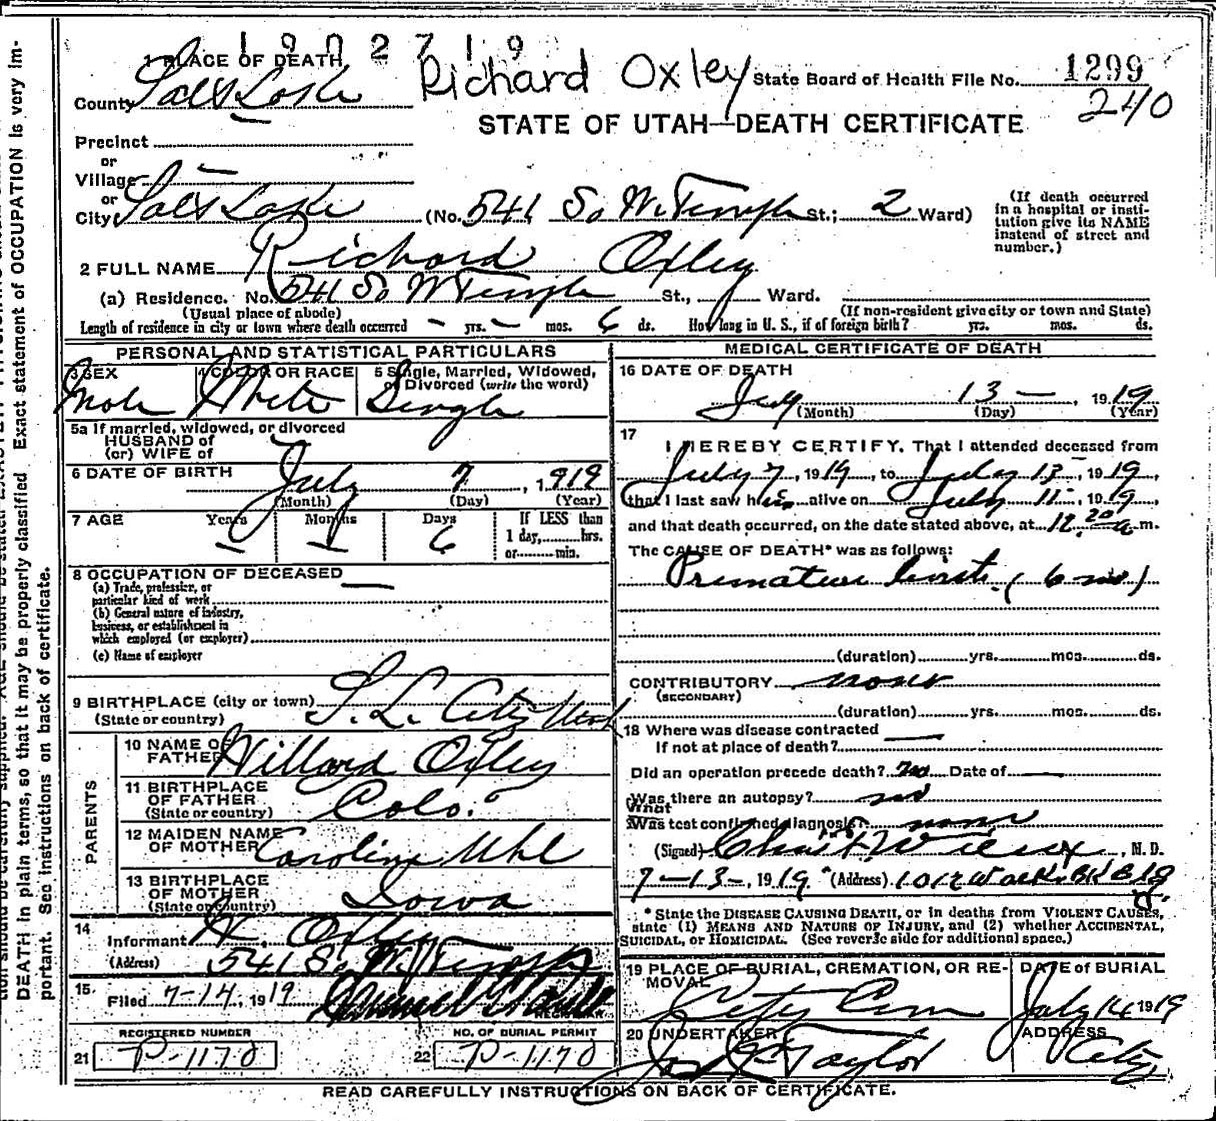 1902719
1 PLACE OF DEATH
Richard Oxley
State Board of Health File No. 1299
County Salt Lake
240
STATE OF UTAH—DEATH CERTIFICATE
Precinct
or
Village —
or
City Salt Lake (No. 541 So W. Temple St.; 2 Ward)
(If death occurred in a hospital or institution give its NAME instead of street and number.)
2 FULL NAME Richard Oxley
(a) Residence. No. 541 So W Temple St., Ward.
(Usual place of abode) (If non-resident give city or town and State)
Length of residence in city or town where death occurred - yrs. - mos. 6 ds. How long in U. S., if of foreign birth? yrs. mos. ds.
PERSONAL AND STATISTICAL PARTICULARS
3 SEX Male
4 COLOR OR RACE White
5 Single, Married, Widowed, or Divorced (write the word) Single
5a If married, widowed, or divorced
HUSBAND of
(or) WIFE of
6 DATE OF BIRTH July 7, 1919
(Month) (Day) (Year)
7 AGE Years - Months - Days 6
If LESS than
1 day, hrs.
or min.
8 OCCUPATION OF DECEASED —
(a) Trade, profession, or
particular kind of work
(b) General nature of industry,
business, or establishment in
which employed (or employer)
(c) Name of employer
9 BIRTHPLACE (city or town) S. L. City Utah
(State or country)
PARENTS
10 NAME OF FATHER Willard Oxley
11 BIRTHPLACE OF FATHER Colo.
(State or country)
12 MAIDEN NAME OF MOTHER Caroline Uhl
13 BIRTHPLACE OF MOTHER Iowa
(State or country)
14 Informant W. Oxley
(Address) 541 So W. Temple
15. Filed 7-14, 1919
REGISTRAR
REGISTERED NUMBER
21 P-1170
NO. OF BURIAL PERMIT
22 P-1170
MEDICAL CERTIFICATE OF DEATH
16 DATE OF DEATH
July 13 —, 1919
(Month) (Day) (Year)
17
I HEREBY CERTIFY, That I attended deceased from
July 7, 1919, to July 13-, 1919,
that I last saw him alive on July 11-, 1919,
and that death occurred, on the date stated above, at 12.20 a m.
The CAUSE OF DEATH* was as follows:
Premature birth. (6 mo)
(duration) yrs. mos. ds.
CONTRIBUTORY none
(SECONDARY)
(duration) yrs. mos. ds.
18 Where was disease contracted —
If not at place of death?
Did an operation precede death? no Date of —
Was there an autopsy? no
What
Was test confirmed diagnosis? none
(Signed) Wilcox, M. D.
7-13-, 1919 (Address) 1012 Walk. Bk Bldg
* State the DISEASE CAUSING DEATH, or in deaths from VIOLENT CAUSES,
state (1) MEANS AND NATURE OF INJURY, and (2) whether ACCIDENTAL,
SUICIDAL, or HOMICIDAL. (See reverse side for additional space.)
19 PLACE OF BURIAL, CREMATION, OR REMOVAL City Cem
DATE of BURIAL July 14 1919
20 UNDERTAKER Taylor
ADDRESS City
READ CAREFULLY INSTRUCTIONS ON BACK OF CERTIFICATE.
DEATH in plain terms, so that it may be properly classified. Exact statement of OCCUPATION is very im-
portant. See instructions on back of certificate.